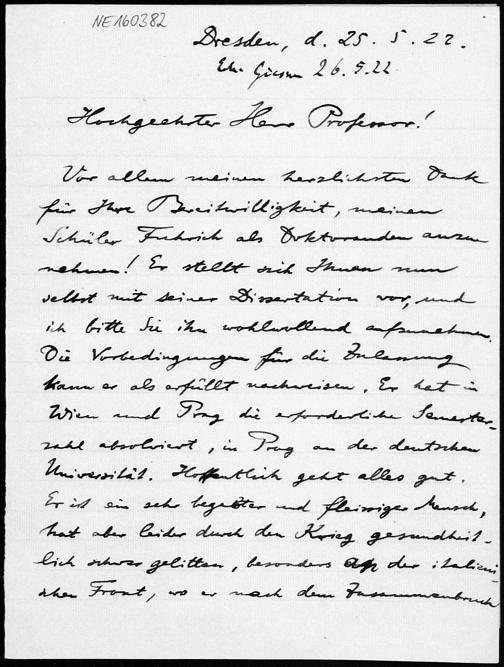 NE160382
Dresden, d. 25. 5. 22.
26.5.22
Hochgeehrter Herr Professor!
Vor allem meinen herzlichsten Dank
für Ihre Bereitwilligkeit, meinen
Schüler als Doktoranden anzu
nehmen! Er stellt sich Ihnen nun
selbst mit seiner Dissertation vor, und
ich bitte Sie ihn wohlwollend aufzunehmen.
Die Vorbedingungen für die Zulassung
kann er als erfüllt nachweisen. Er hat in
Wien und Prag die erforderliche Semester-
zahl absolviert, in Prag an der deutschen
Universität. Hoffentlich geht alles gut.
Er ist ein sehr begabter und fleissiger Mensch,
hat aber leider durch den Krieg gesundheit-
lich schwer gelitten, besonders an der italieni
schen Front, wo er nach dem Zusammenbruch